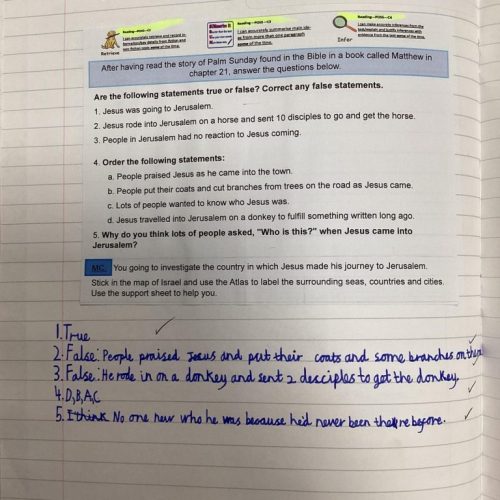 Reading—POS1—C3
I can accurately retrieve and record in-
formation/key details from fiction and
non fiction texts some of the time.
Retrieve
Summarise it
Reading—POS5—C3
I can accurately summarise main ide-
as from more than one paragraph
some of the time.
Reading—POS3—C4
I can make accurate inferences from the
evidence from the text some of the time.
Infer
After having read the story of Palm Sunday found in the Bible in a book called Matthew in
chapter 21, answer the questions below.
Are the following statements true or false? Correct any false statements.
1. Jesus was going to Jerusalem.
2. Jesus rode into Jerusalem on a horse and sent 10 disciples to go and get the horse.
3. People in Jerusalem had no reaction to Jesus coming.
4. Order the following statements:
a. People praised Jesus as he came into the town.
b. People put their coats and cut branches from trees on the road as Jesus came.
c. Lots of people wanted to know who Jesus was.
d. Jesus travelled into Jerusalem on a donkey to fulfill something written long ago.
5. Why do you think lots of people asked, "Who is this?" when Jesus came into
Jerusalem?
MC: You going to investigate the country in which Jesus made his journey to Jerusalem.
Stick in the map of Israel and use the Atlas to label the surrounding seas, countries and cities.
Use the support sheet to help you.
1. True
2. False: People praised Jesus and put their coats and some branches on the
3. False: He rode in on a donkey and sent 2 desciples to get the donkey.
4. D,B,A,C
5. I think No one new who he was because he'd never been there before.